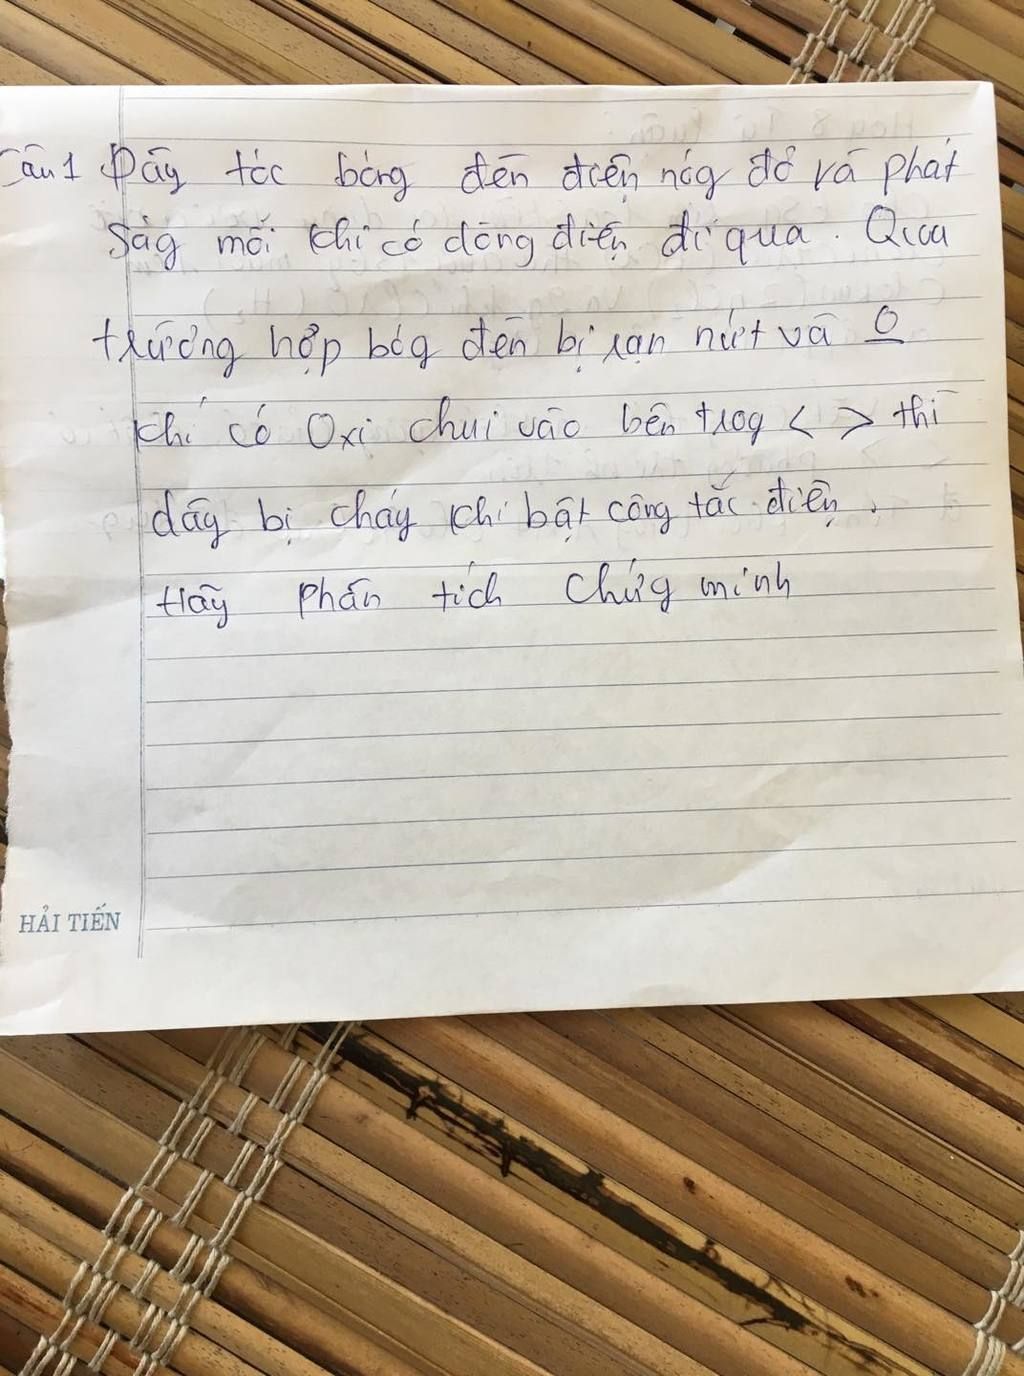 Câu 1 Dây tóc bóng đèn điện nóg đỏ và phát
Ság mỗi khi có dòng điện đi qua. Qua
trường hợp bóg đèn bị rạn nứt và O
khí có Oxi chui vào bên trog < > thì
dây bị cháy khi bật công tắc điện.
Hãy phân tích chứg minh
HẢI TIẾN